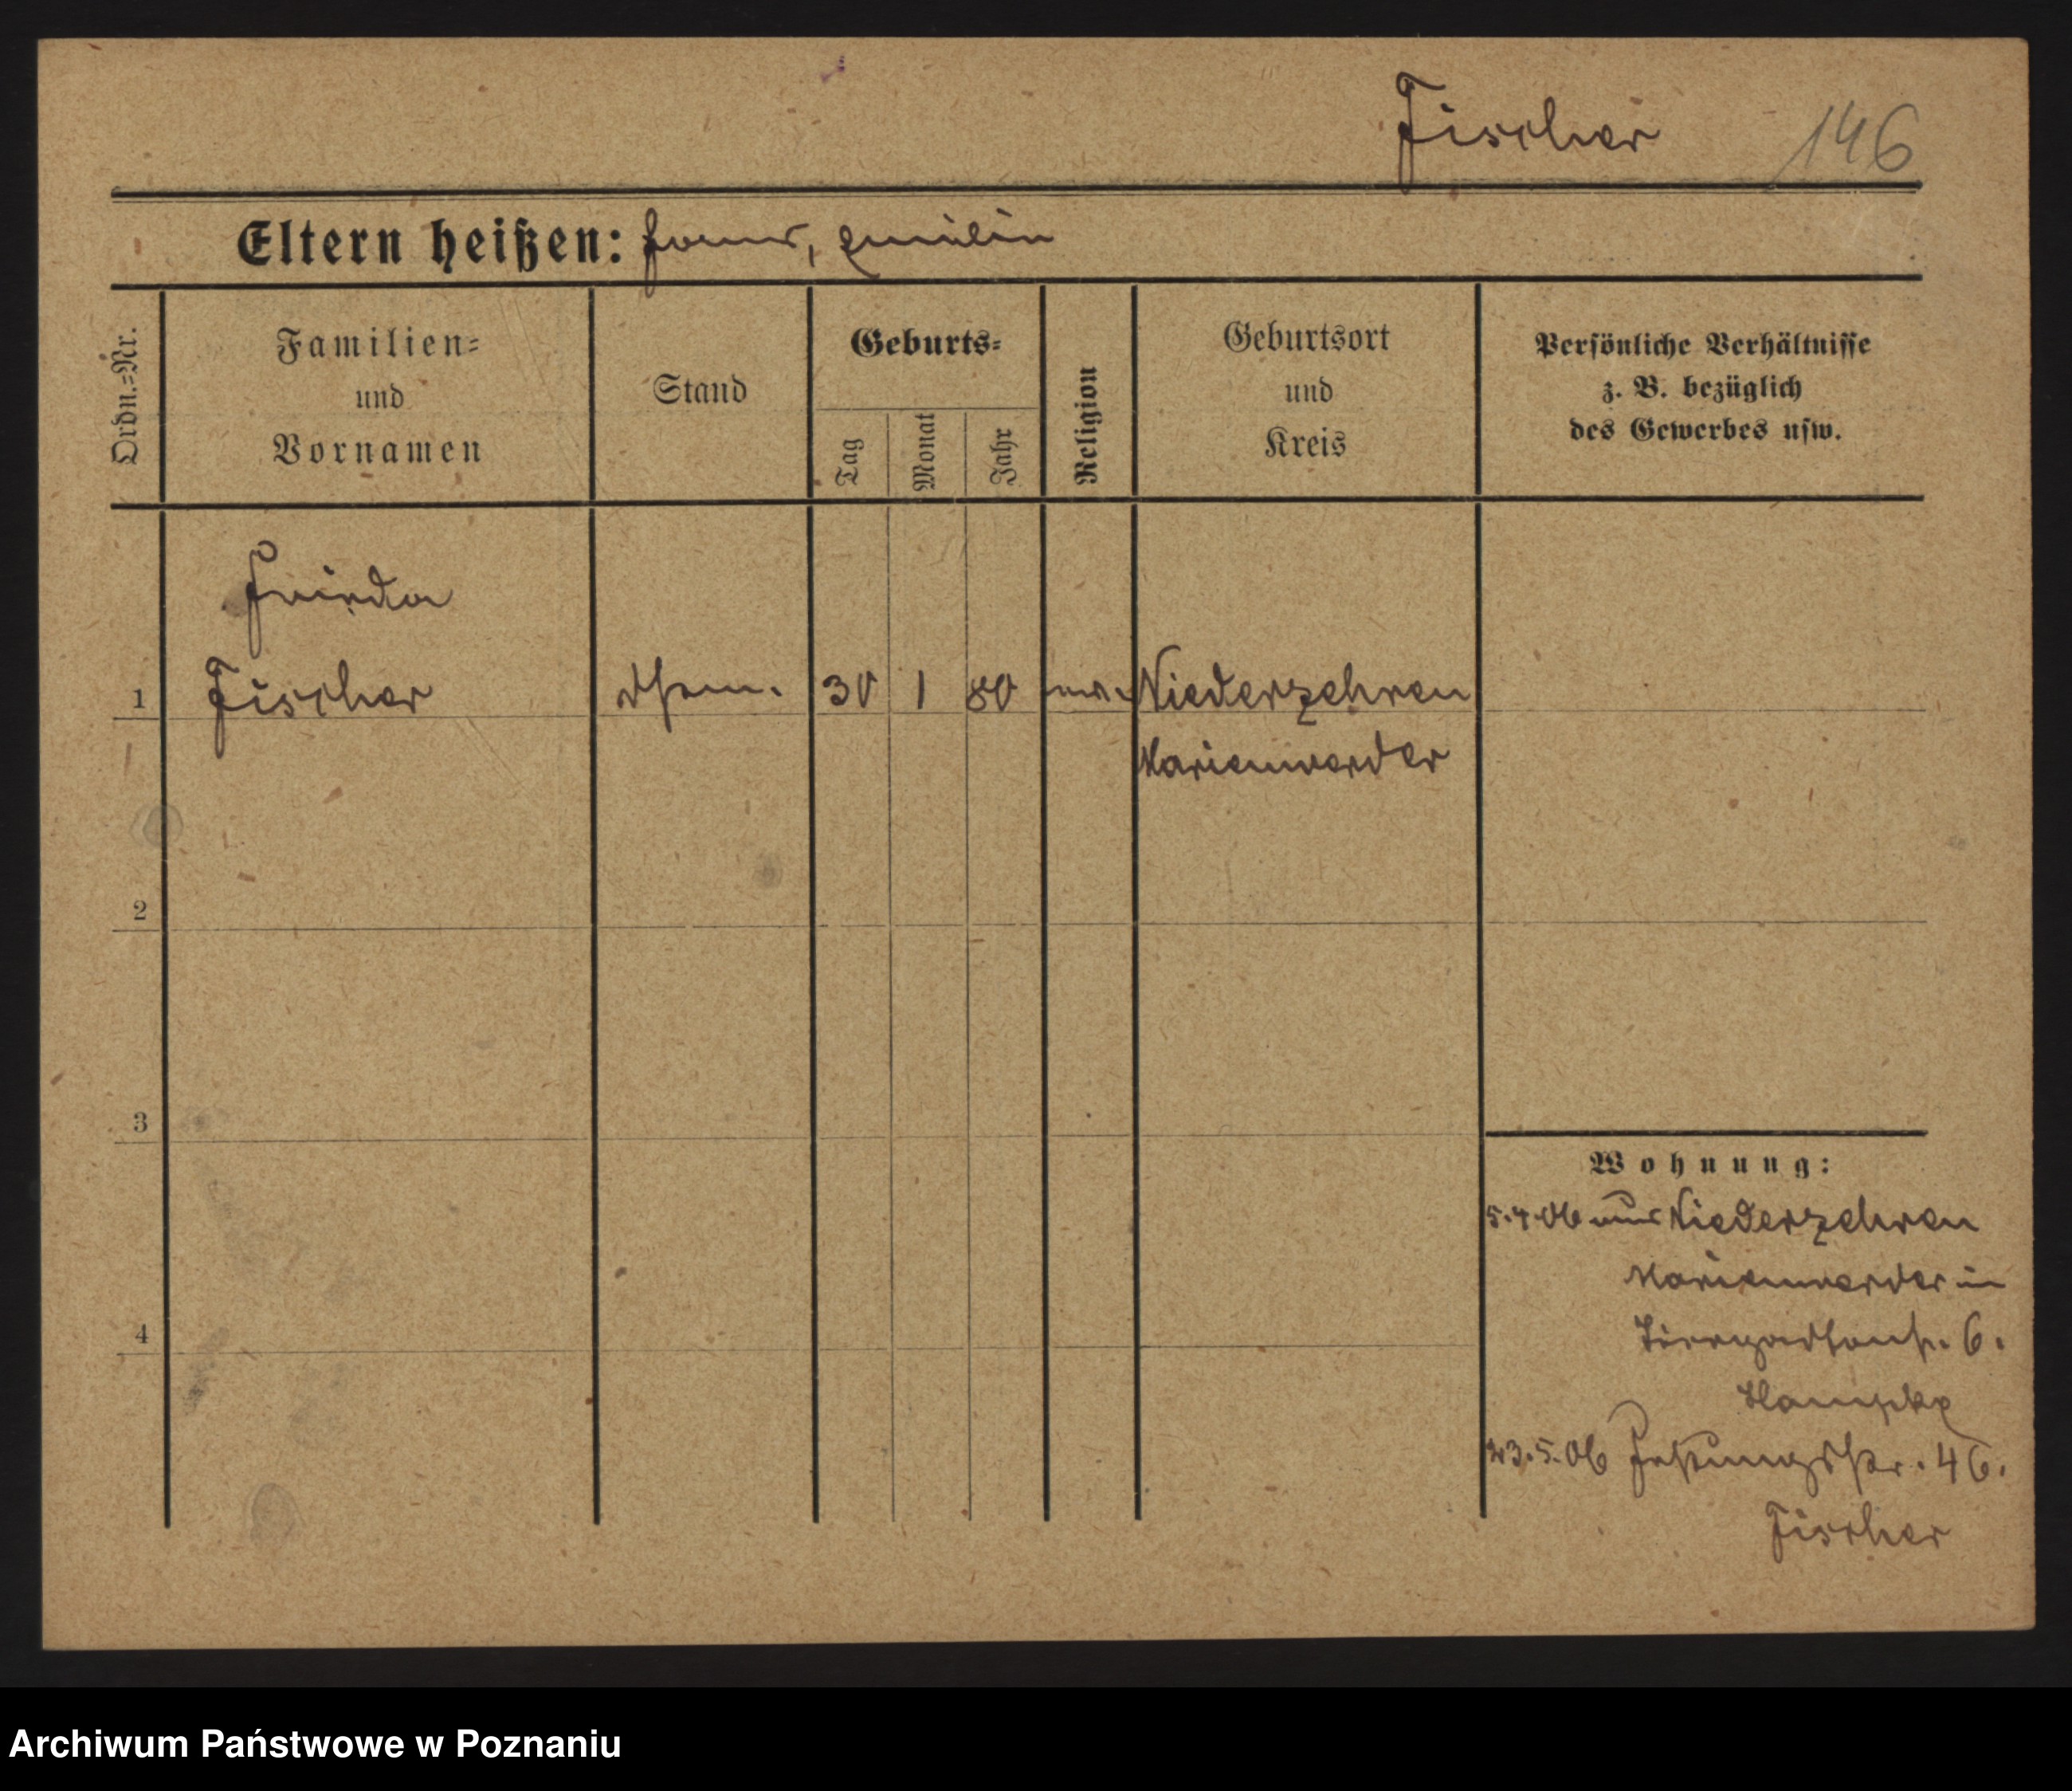 Fischer 146
Eltern heißen: Franz, Emilie
Ordn.=Nr.
Familien=
und
Vornamen
Stand
Geburts=
Tag
Monat
Jahr
Religion
Geburtsort
und
Kreis
Persönliche Verhältnisse
z. B. bezüglich
des Gewerbes usw.
Frieda
1 Fischer 30 1 80 Niederzehren
Marienwerder
2
3
4
Wohnung:
5.4.06 aus Niederzehren
Marienwerder in
Tiergartenstr. 6.
23.5.06 Festungsstr. 46.
Fischer
Archiwum Państwowe w Poznaniu